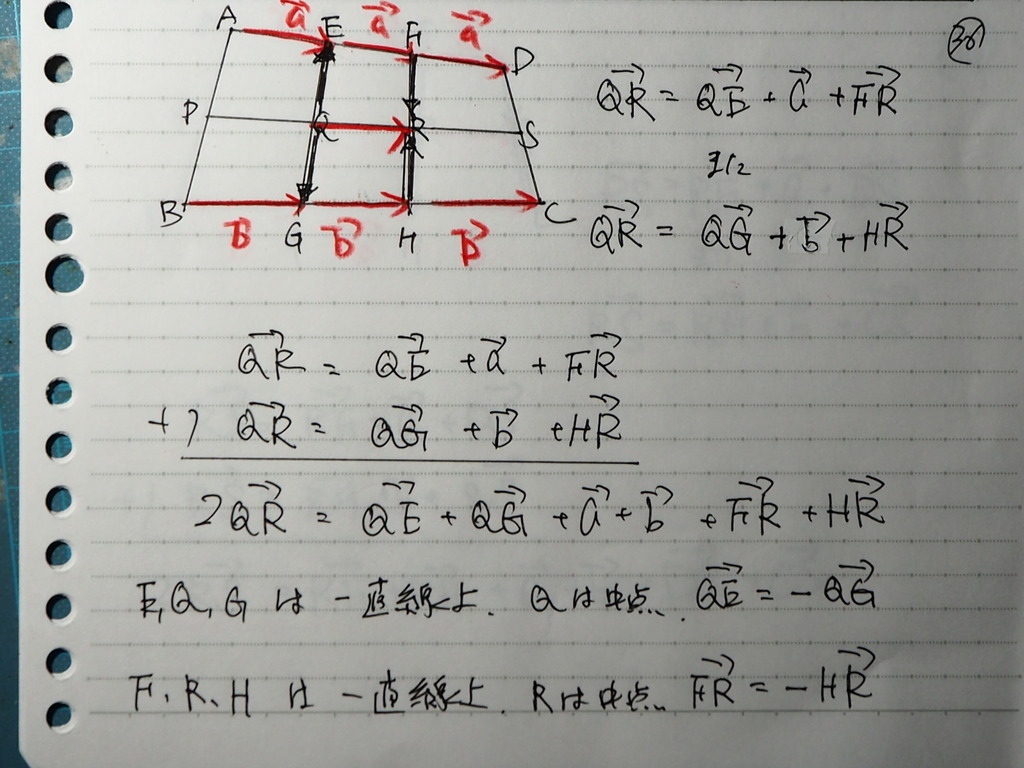 A a⃗ E a⃗ F a⃗ D
P Q R S
B b⃗ G b⃗ H b⃗ C
QR⃗ = QE⃗ + a⃗ + FR⃗
QR⃗ = QG⃗ + b⃗ + HR⃗
QR⃗ = QE⃗ + a⃗ + FR⃗
+) QR⃗ = QG⃗ + b⃗ + HR⃗
2QR⃗ = QE⃗ + QG⃗ + a⃗ + b⃗ + FR⃗ + HR⃗
E, Q, G は 一直線上. Qは中点. QE⃗ = - QG⃗
F、R、H は 一直線上. Rは中点. FR⃗ = - HR⃗